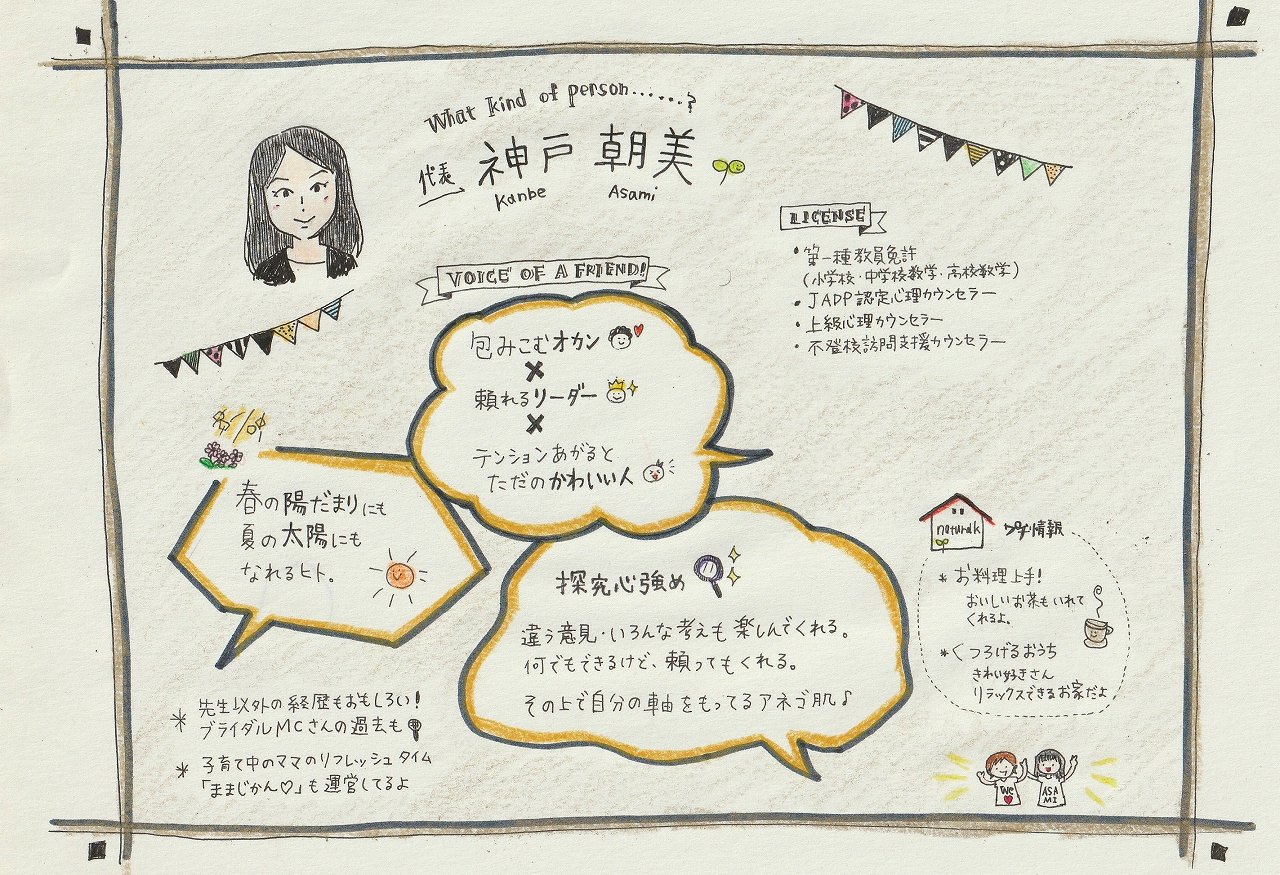 What kind of person......?
代表 神戸 朝美
Kanbe Asami
LICENSE
・第一種教員免許
(小学校・中学校数学・高校数学)
・JADP認定心理カウンセラー
・上級心理カウンセラー
・不登校訪問支援カウンセラー
VOICE OF A FRIEND!
包みこむオカン
×
頼れるリーダー
×
テンションあがると
ただのかわいい人
春の陽だまりにも
夏の太陽にも
なれるヒト。
探究心強め
違う意見・いろんな考えも楽しんでくれる。
何でもできるけど、頼ってもくれる。
その上で自分の軸をもってるアネゴ肌♪
naturalk プチ情報
* お料理上手!
おいしいお茶もいれて
くれるよ。
* くつろげるおうち
きれい好きさん
リラックスできるお家だよ
* 先生以外の経歴もおもしろい!
ブライダルMCさんの過去も
* 子育て中のママのリフレッシュタイム
「ままじかん♡」も運営してるよ
We
ASA
MI